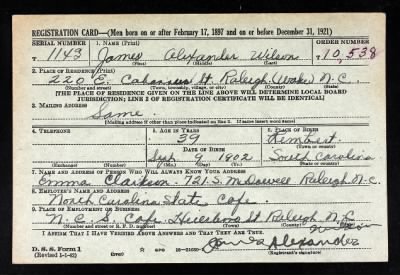 REGISTRATION CARD—(Men born on or after February 17, 1897 and on or before December 31, 1921)
SERIAL NUMBER 1. NAME (Print) ORDER NUMBER
1143 James Alexander Wilson 10,538
(First) (Middle) (Last)
2. PLACE OF RESIDENCE (Print)
220 E. Cabarrus St. Raleigh, Wake N.C.
(Number and street) (Town, township, village, or city) (County) (State)
[THE PLACE OF RESIDENCE GIVEN ON THE LINE ABOVE WILL DETERMINE LOCAL BOARD
JURISDICTION; LINE 2 OF REGISTRATION CERTIFICATE WILL BE IDENTICAL]
3. MAILING ADDRESS
Same
[Mailing address if other than place indicated on line 2. If same insert word same]
4. TELEPHONE 5. AGE IN YEARS 6. PLACE OF BIRTH
39 Rembert
DATE OF BIRTH (Town or county)
Sept 9 1902 South Carolina
(Exchange) (Number) (Mo.) (Day) (Yr.) (State or country)
7. NAME AND ADDRESS OF PERSON WHO WILL ALWAYS KNOW YOUR ADDRESS
Emma Clarkson - 721 S. McDowell Raleigh N.C.
8. EMPLOYER'S NAME AND ADDRESS
North Carolina State Cafe.
9. PLACE OF EMPLOYMENT OR BUSINESS
N.C.S. Cafe Hillsboro St Raleigh N.C.
(Number and street or R. F. D. number) (Town) (County) (State)
I AFFIRM THAT I HAVE VERIFIED ABOVE ANSWERS AND THAT THEY ARE TRUE.
D. S. S. Form 1
(Revised 1-1-42) (over) James Alexander Wilson
(Registrant's signature)